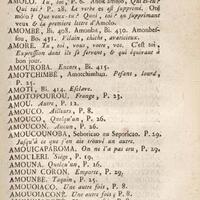 AMOLO. Tu, toi, P. 6. Amolo amolo, Qui es-tu?
Qui toi? P. 28. Le verbe es est supprimé, On
mola? Que veux-tu? Quoi, toi? en supprimant
veux & la premiere lettre d'Amolo.
AMOMBRÉ, Bi. 408. Amonba, Bi. 430. Amonbes-
fou, Bi. 431. Vilain, chiche, avaricieux.
AMORE. Tu, toi, vous, votre, vos. C'est toi,
Expression dont ils se servent, & qui équivaut à
bon jour.
AMOUROBA. Encore, Bi. 415.
AMOTCHIMBÉ, Amotchimban. Pesant, lourd,
P. 25.
AMOTI, Bi. 412. Esclave.
AMOTOPOUROU. Frange, P. 23.
AMOU. Autre, P. 12.
AMOUCO. Ailleurs, P. 8.
AMOUCO, Quelqu'un, P. 26.
AMOUCON. Aucun, P. 26.
AMOUCOUNOBA, Seboricao ou Seporicao. P. 29.
Jusqu'à ce que j'en aie trouvé un autre.
AMOUICAPAROMA. On ne l'a pas cru, P. 29.
AMOULERI. Siége, P. 19.
AMOUNA. Quelqu'un, P. 26.
AMOUN CORON, Emporte, P. 29.
AMOUNÉ. Taquin, P. 25.
AMOUOIACO. Une autre fois, P. 8.
AMOUOIACONÉ. Une autre fois, P. 8.